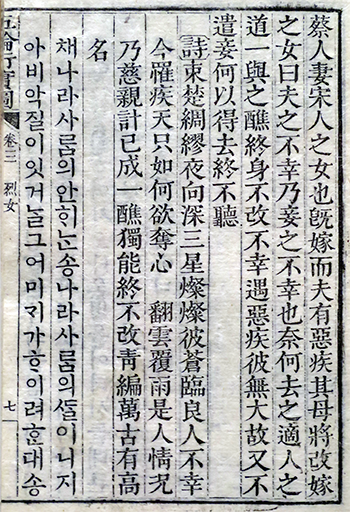 蔡人妻宋人之女也旣嫁而夫有惡疾其母將改嫁
之女曰夫之不幸乃妾之不幸也奈何去之適人之
道一與之醮終身不改不幸遇惡疾彼無大故又不
遣妾何以得去終不聽
詩束楚綢繆夜向深三星燦燦彼蒼臨良人不幸
今罹疾天只如何欲奪心 翻雲覆雨是人情況
乃慈親計已成一醮獨能終不改靑編萬古有高
名
채나라사ᄅᆞᆷ의안ᄒᆡᄂᆞᆫ송나라사ᄅᆞᆷ의ᄯᆞᆯ이니지
아비악질이잇거ᄂᆞᆯ그어미ᄀᆡ가ᄒᆞ이려ᄒᆞᆫ대송
五倫行實圖 卷三 烈女 七